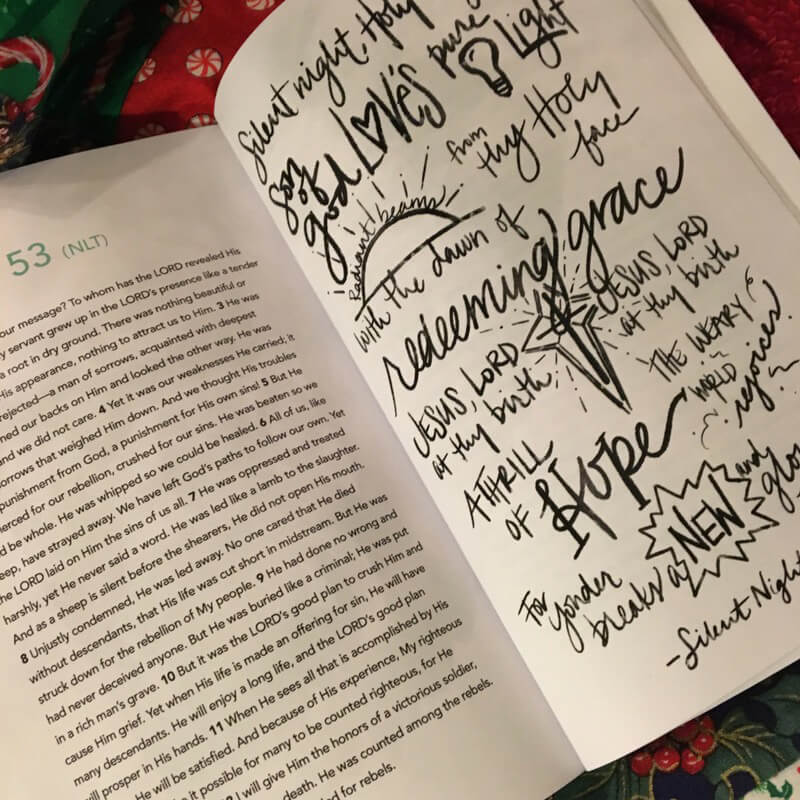 53 (NLT)
our message? To whom has the LORD revealed His
servant grew up in the LORD's presence like a tender
a root in dry ground. There was nothing beautiful or
His appearance, nothing to attract us to Him. 3 He was
rejected—a man of sorrows, acquainted with deepest
ned our backs on Him and looked the other way. He was
and we did not care. 4 Yet it was our weaknesses He carried; it
orrows that weighed Him down. And we thought His troubles
punishment from God, a punishment for His own sins! 5 But He
erced for our rebellion, crushed for our sins. He was beaten so we
d be whole. He was whipped so we could be healed. 6 All of us, like
eep, have strayed away. We have left God's paths to follow our own. Yet
he LORD laid on Him the sins of us all. 7 He was oppressed and treated
harshly, yet He never said a word. He was led like a lamb to the slaughter.
And as a sheep is silent before the shearers, He did not open His mouth.
8 Unjustly condemned, He was led away. No one cared that He died
without descendants, that His life was cut short in midstream. But He was
struck down for the rebellion of My people. 9 He had done no wrong and
had never deceived anyone. But He was buried like a criminal; He was put
in a rich man's grave. 10 But it was the LORD's good plan to crush Him and
cause Him grief. Yet when His life is made an offering for sin, He will have
many descendants. He will enjoy a long life, and the LORD's good plan
will prosper in His hands. 11 When He sees all that is accomplished by His
He will be satisfied. And because of His experience, My righteous
it possible for many to be counted righteous, for He
I will give Him the honors of a victorious soldier,
death. He was counted among the rebels.
for rebels.
Silent night, Holy
son of god LOVE'S pure Light
from thy Holy face
Radiant beams
with the dawn of
redeeming grace
JESUS, LORD at thy birth
JESUS, LORD at thy birth
A THRILL OF Hope
THE WEARY WORLD rejoices
For yonder breaks a NEW and
-Silent Night